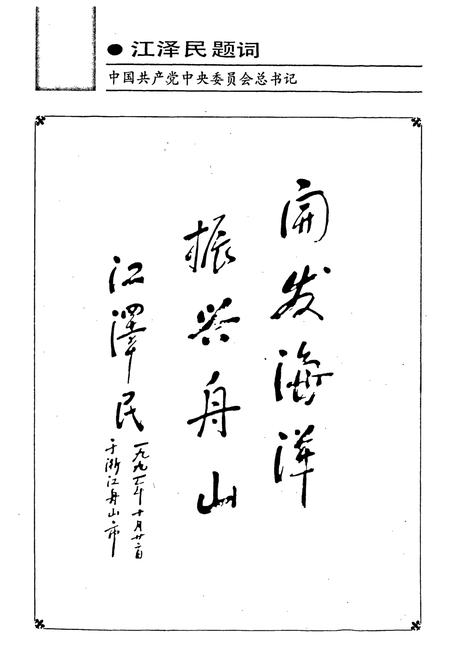 江泽民题词
中国共产党中央委员会总书记
開发海洋
振兴舟山
江澤民
一九九一年十月廿二日
于浙江舟山市